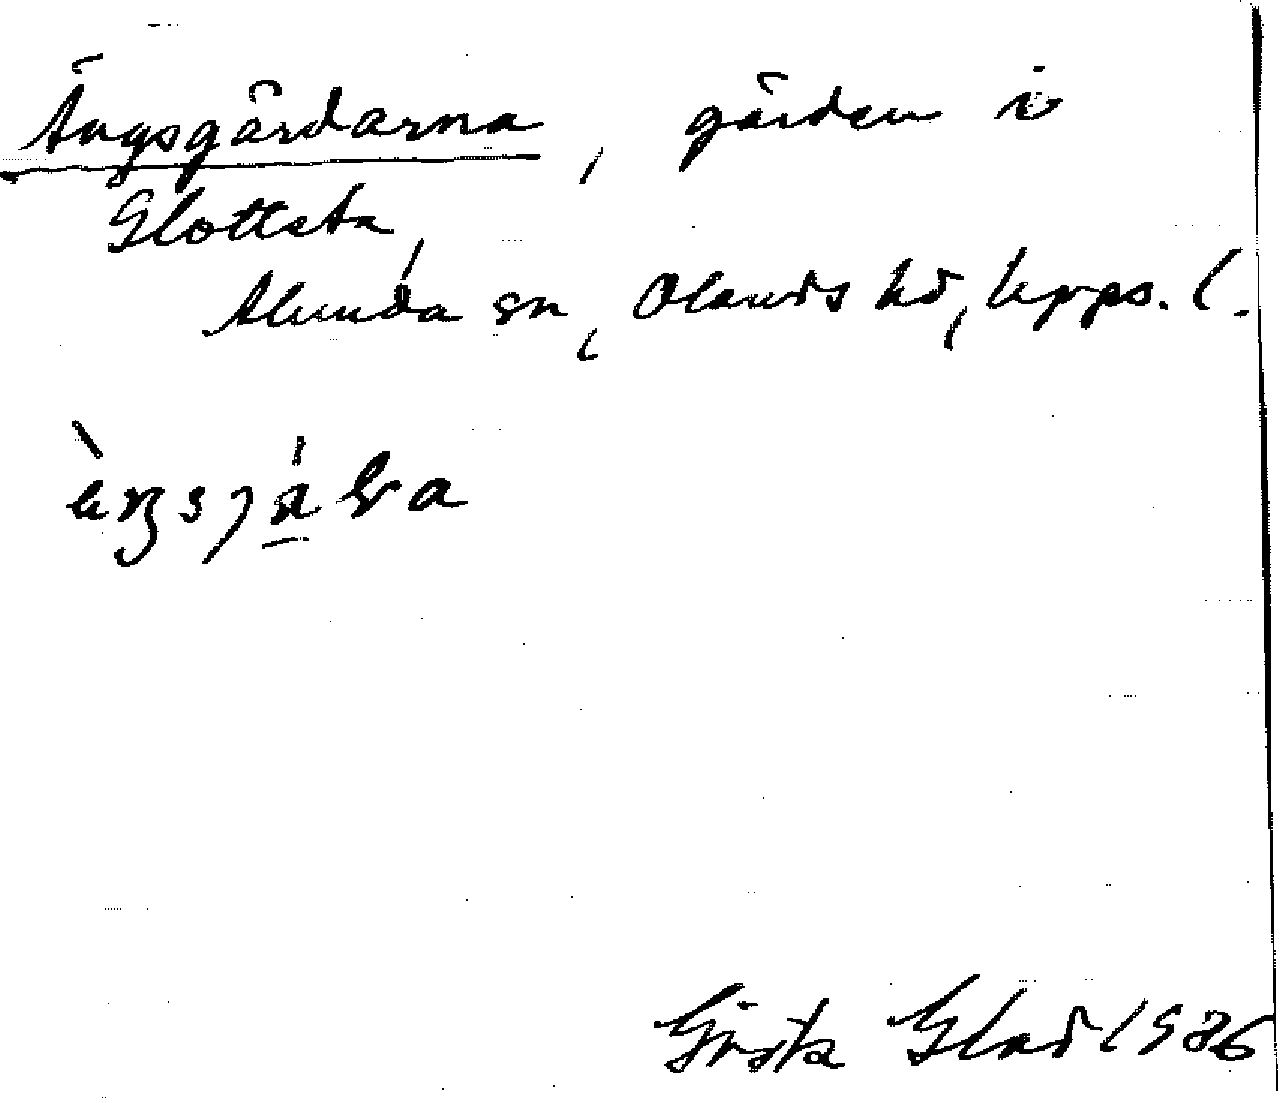 Ängsgärdarna, gärden i
Glottsta,
Alunda sn, Olands hd, Upps. l.
Gösta Glad 1986